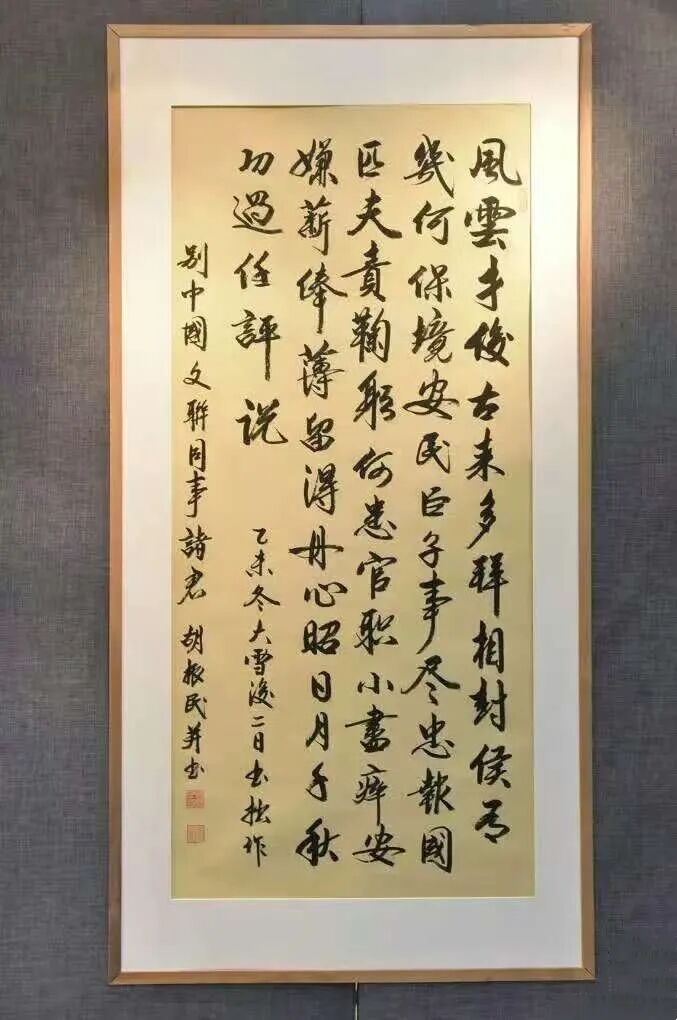 風雲才俊古来多拜相封侯有
幾何保境安民臣子事尽忠報國
匹夫責鞠躬何患官职小盡瘁安
嫌薪俸薄留得丹心昭日月千秋
功過任評说
乙未冬大雪後二日书拙作
别中國文聯同事諸君 胡振民并书